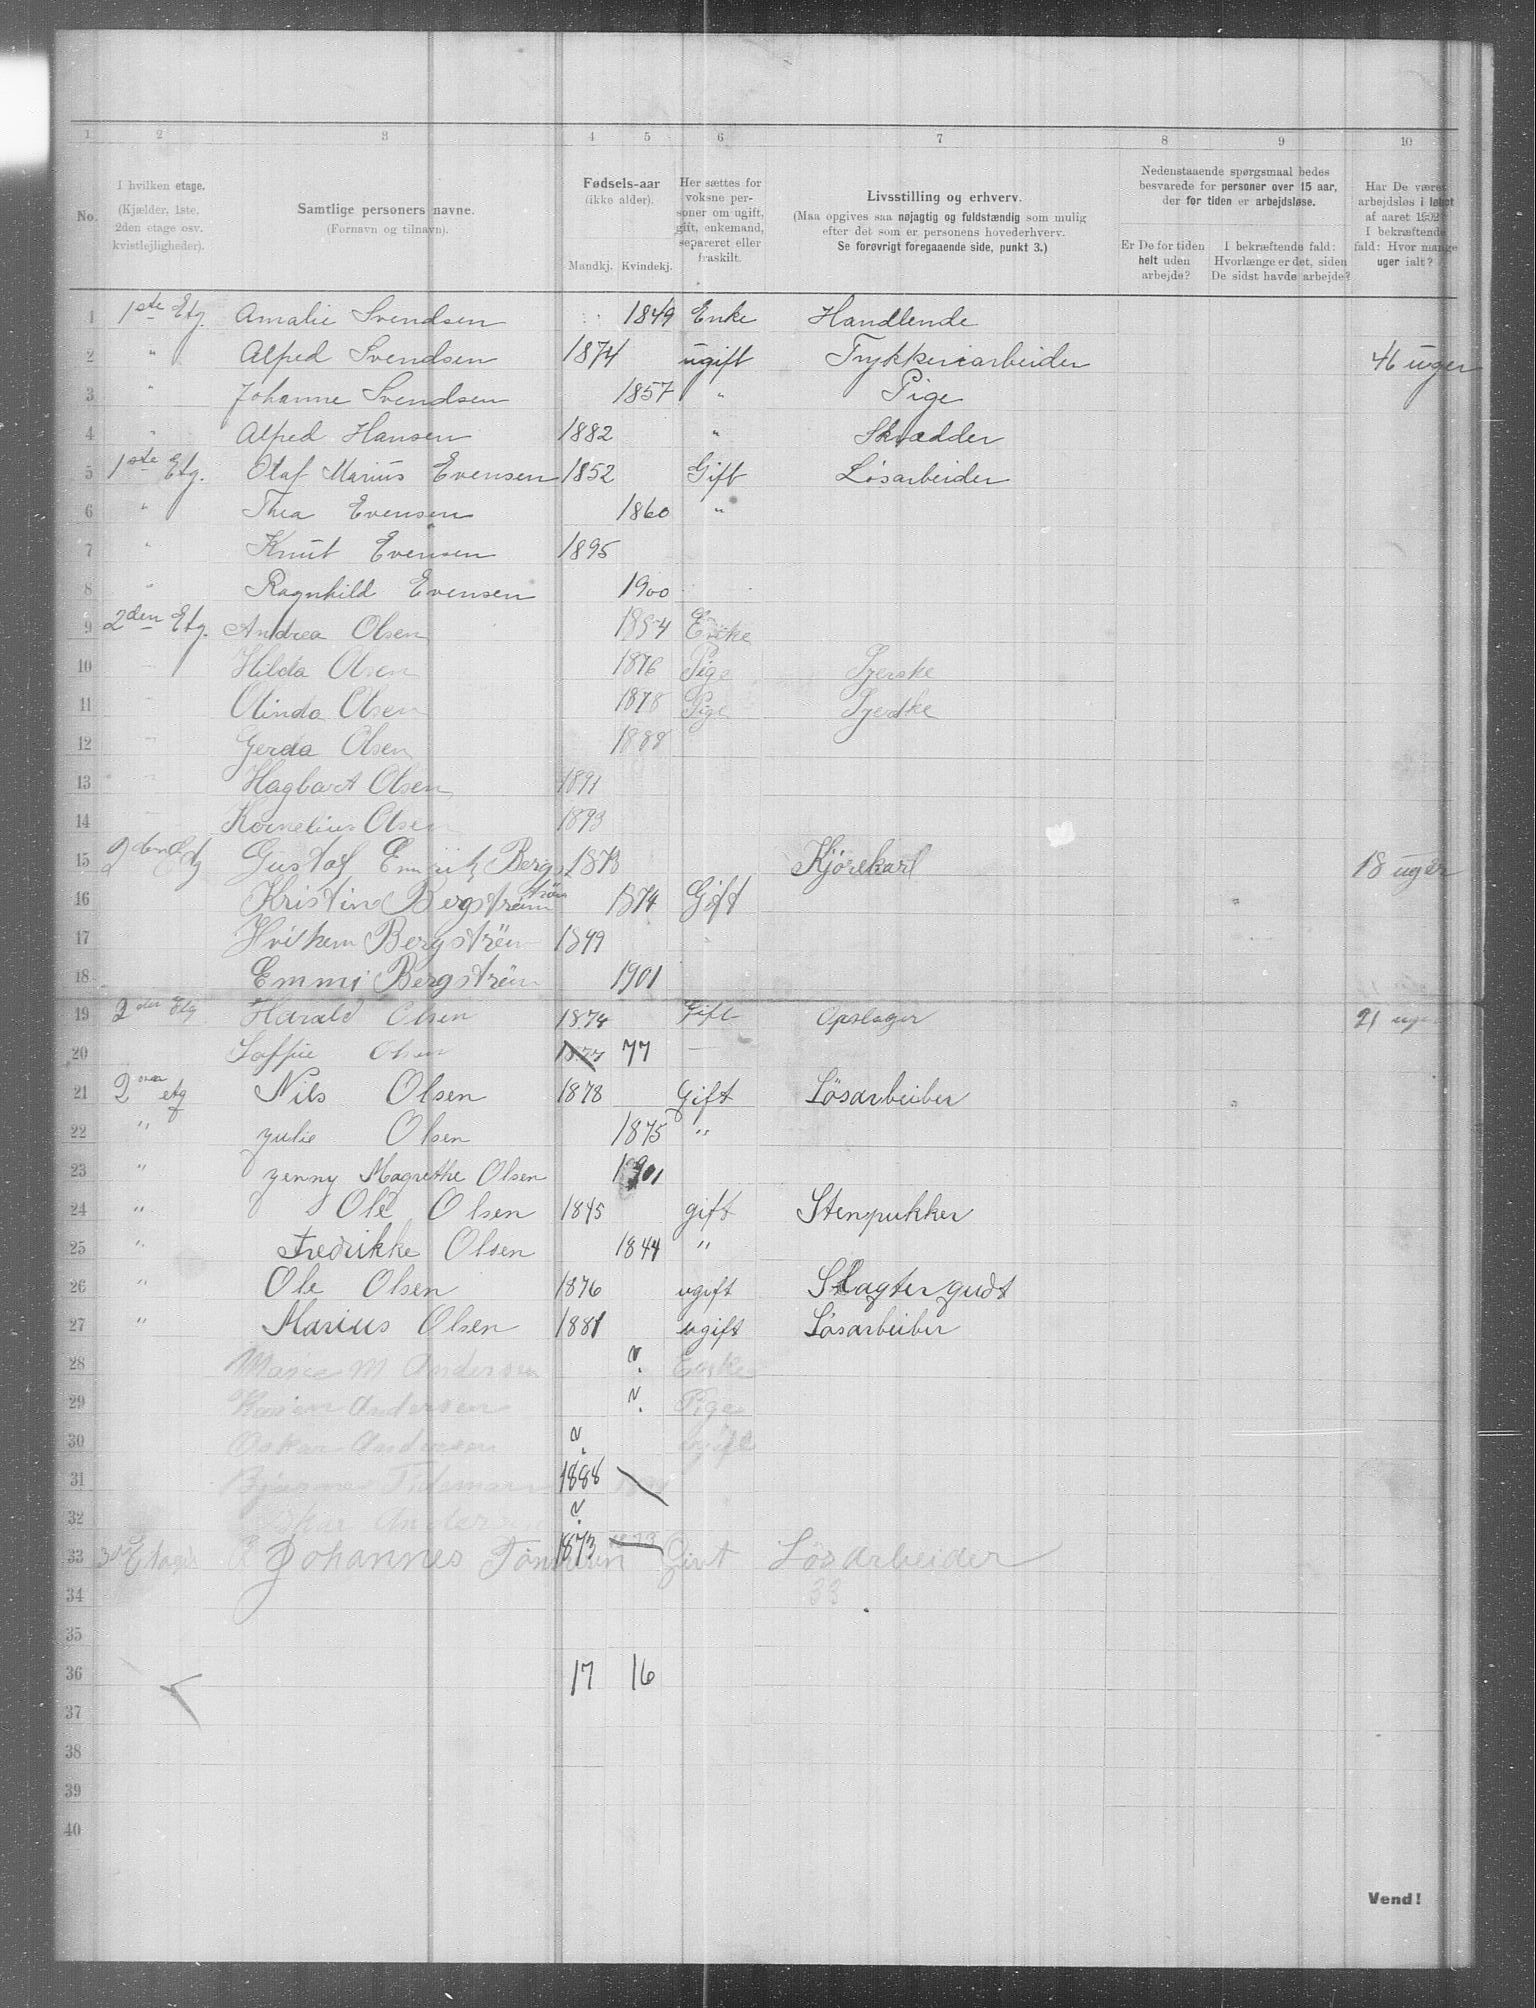 1 2 3 4 5 6 7 8 9 10
No.
I hvilken etage.
(Kjælder, 1ste,
2den etage osv.
kvistlejligheder).
Samtlige personers navne.
(Fornavn og tilnavn).
Fødsels-aar
(ikke alder).
Mandkj. Kvindekj.
Her sættes for
voksne per-
soner om ugift,
gift, enkemand,
separeret eller
fraskilt.
Livsstilling og erhverv.
(Maa opgives saa nøjagtig og fuldstændig som mulig
efter det som er personens hovederhverv.
Se forøvrigt foregaaende side, punkt 3.)
Nedenstaaende spørgsmaal bedes
besvarede for personer over 15 aar,
der for tiden er arbejdsløse.
Er De for tiden
helt uden
arbejde?
I bekræftende fald:
Hvorlænge er det, siden
De sidst havde arbejde?
Har De været
arbejdsløs i løbet
af aaret 1902?
I bekræftende
fald: Hvor mange
uger ialt?
1 1ste Etg. Amalie Svendsen 1849 Enke Handlende
2 " Alfred Svendsen 1874 ugift Trykkeriarbeider 46 uger
3 " Johanne Svendsen 1857 " Pige
4 " Alfred Hansen 1882 " Skrædder
5 1ste Etg. Olaf Marius Evensen 1852 Gift Løsarbeider
6 " Thea Evensen 1860 "
7 " Knut Evensen 1895
8 " Ragnhild Evensen 1900
9 2den Etg. Andrea Olsen 1854 Enke
10 Hilda Olsen 1876 Pige Syerske
11 Olinda Olsen 1878 Pige Syerske
12 Gerda Olsen 1888
13 Hagbart Olsen 1891
14 Kornelius Olsen 1893
15 2den Etg Gustaf Bergs 1873 Kjørekarl 18 uger
trøm
16 Kristine Bergstrøm 1874 Gift
17 Bergström 1899
18 Emmi Bergström 1901
19 2den Etg Harald Olsen 1874 Gift Opslager 21 uger
20 Soffie Olsen 1877 77
21 2den etg Nils Olsen 1878 Gift Løsarbeiber
22 " yulie Olsen 1875 "
23 " yenny Magrethe Olsen 1901
24 " Ole Olsen 1845 gift Stenpukker
25 " Fredrikke Olsen 1844 "
26 " Ole Olsen 1876 ugift Slagtergudt
27 " Marius Olsen 1881 ugift Løsarbeiber
28 Marie M Andersen ? Enke
29 Andersen ? Pige
30 Oskar Andersen ? ugift
31 Bjarne 1888
32 Oskar Andersen ?
33 3die Etage Johannes 1873 Givt Løsarbeider
34 33
35
36 17 16
37
38
39
40
Vend!